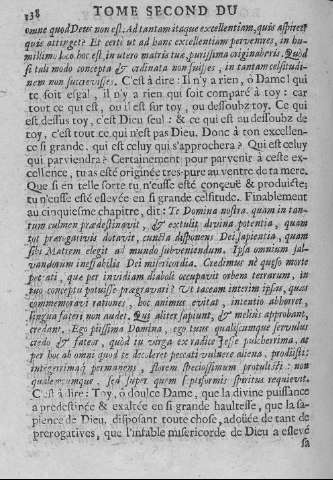 138 TOME SECOND DU
omne quod Deus non est. Ad tantam itaque excellentiam, quis aspiret
quis attinget? Et certi ut ad hanc excellentiam pervenires, in hu-
millimo loco hoc est, in utero matris tuæ, purissima originaberis. Quod
si tali modo concepta & ordinata non fuisses, in tantam celsitudi-
nem non successisses. C'est à dire: Il n'y a rien, ô Dame! qui
te soit esgal, il n'y a rien qui soit comparé à toy: car
tout ce qui est, ou il est sur toy, ou dessoubz toy. Ce qui
est dessus toy, c'est Dieu seul: & ce qui est au dessoubz de
toy, c'est tout ce qui n'est pas Dieu. Donc à ton excellen-
ce si grande, qui est celuy qui s'approchera? Qui est celuy
qui parviendra? Certainement pour parvenir à ceste ex-
cellence, tu as esté originée tres-pure au ventre de ta mere.
Que si en telle sorte tu n'eusse esté conçeuë & produiste;
tu n'eusse esté eslevée en si grande celsitude. Finablement
au cinquiesme chapitre, dit: Te Domina nostra, quam in tan-
tum culmen prædestinavit, & extulit divina potentia, quam
tot prærogativis dotavit, cuncta disponens Dei sapientia, quam
sibi Matrem elegit ad mundo subveniendum. Ipsa omnium sal-
vandorum ineffabilis Dei misericordia. Credimus né quæso morte
peccati, que per invidiam diaboli occupavit orbem terrarum, in
tuo conceptu potuisse prægravari? Ut taceam interim ipsas, quas
commemoravi rationes, hoc animus evitat, intentio abhorret,
lingua fateri non audet. Qui aliter sapiunt, & melius approbant,
credant. Ego piissima Domina, ego tuus qualiscumque servulus
credo & fateor, quòd tu virga ex radice Jesse pulcherrima, at
per hoc ab omni quod te decoleret peccati vulnere aliena, prodiisti:
integerrima permanens, florem speciosissimum protulisti: non
qualemcumque, sed super quem septiformis spiritus requievit.
C'est à dire: Toy, ô doulce Dame, que la divine puissance
a predestinée & exaltée en si grande haultesse, que la sa-
pience de Dieu, disposant toute chose, adoüée de tant de
prerogatives, que l'infable misericorde de Dieu a eslevé
sa